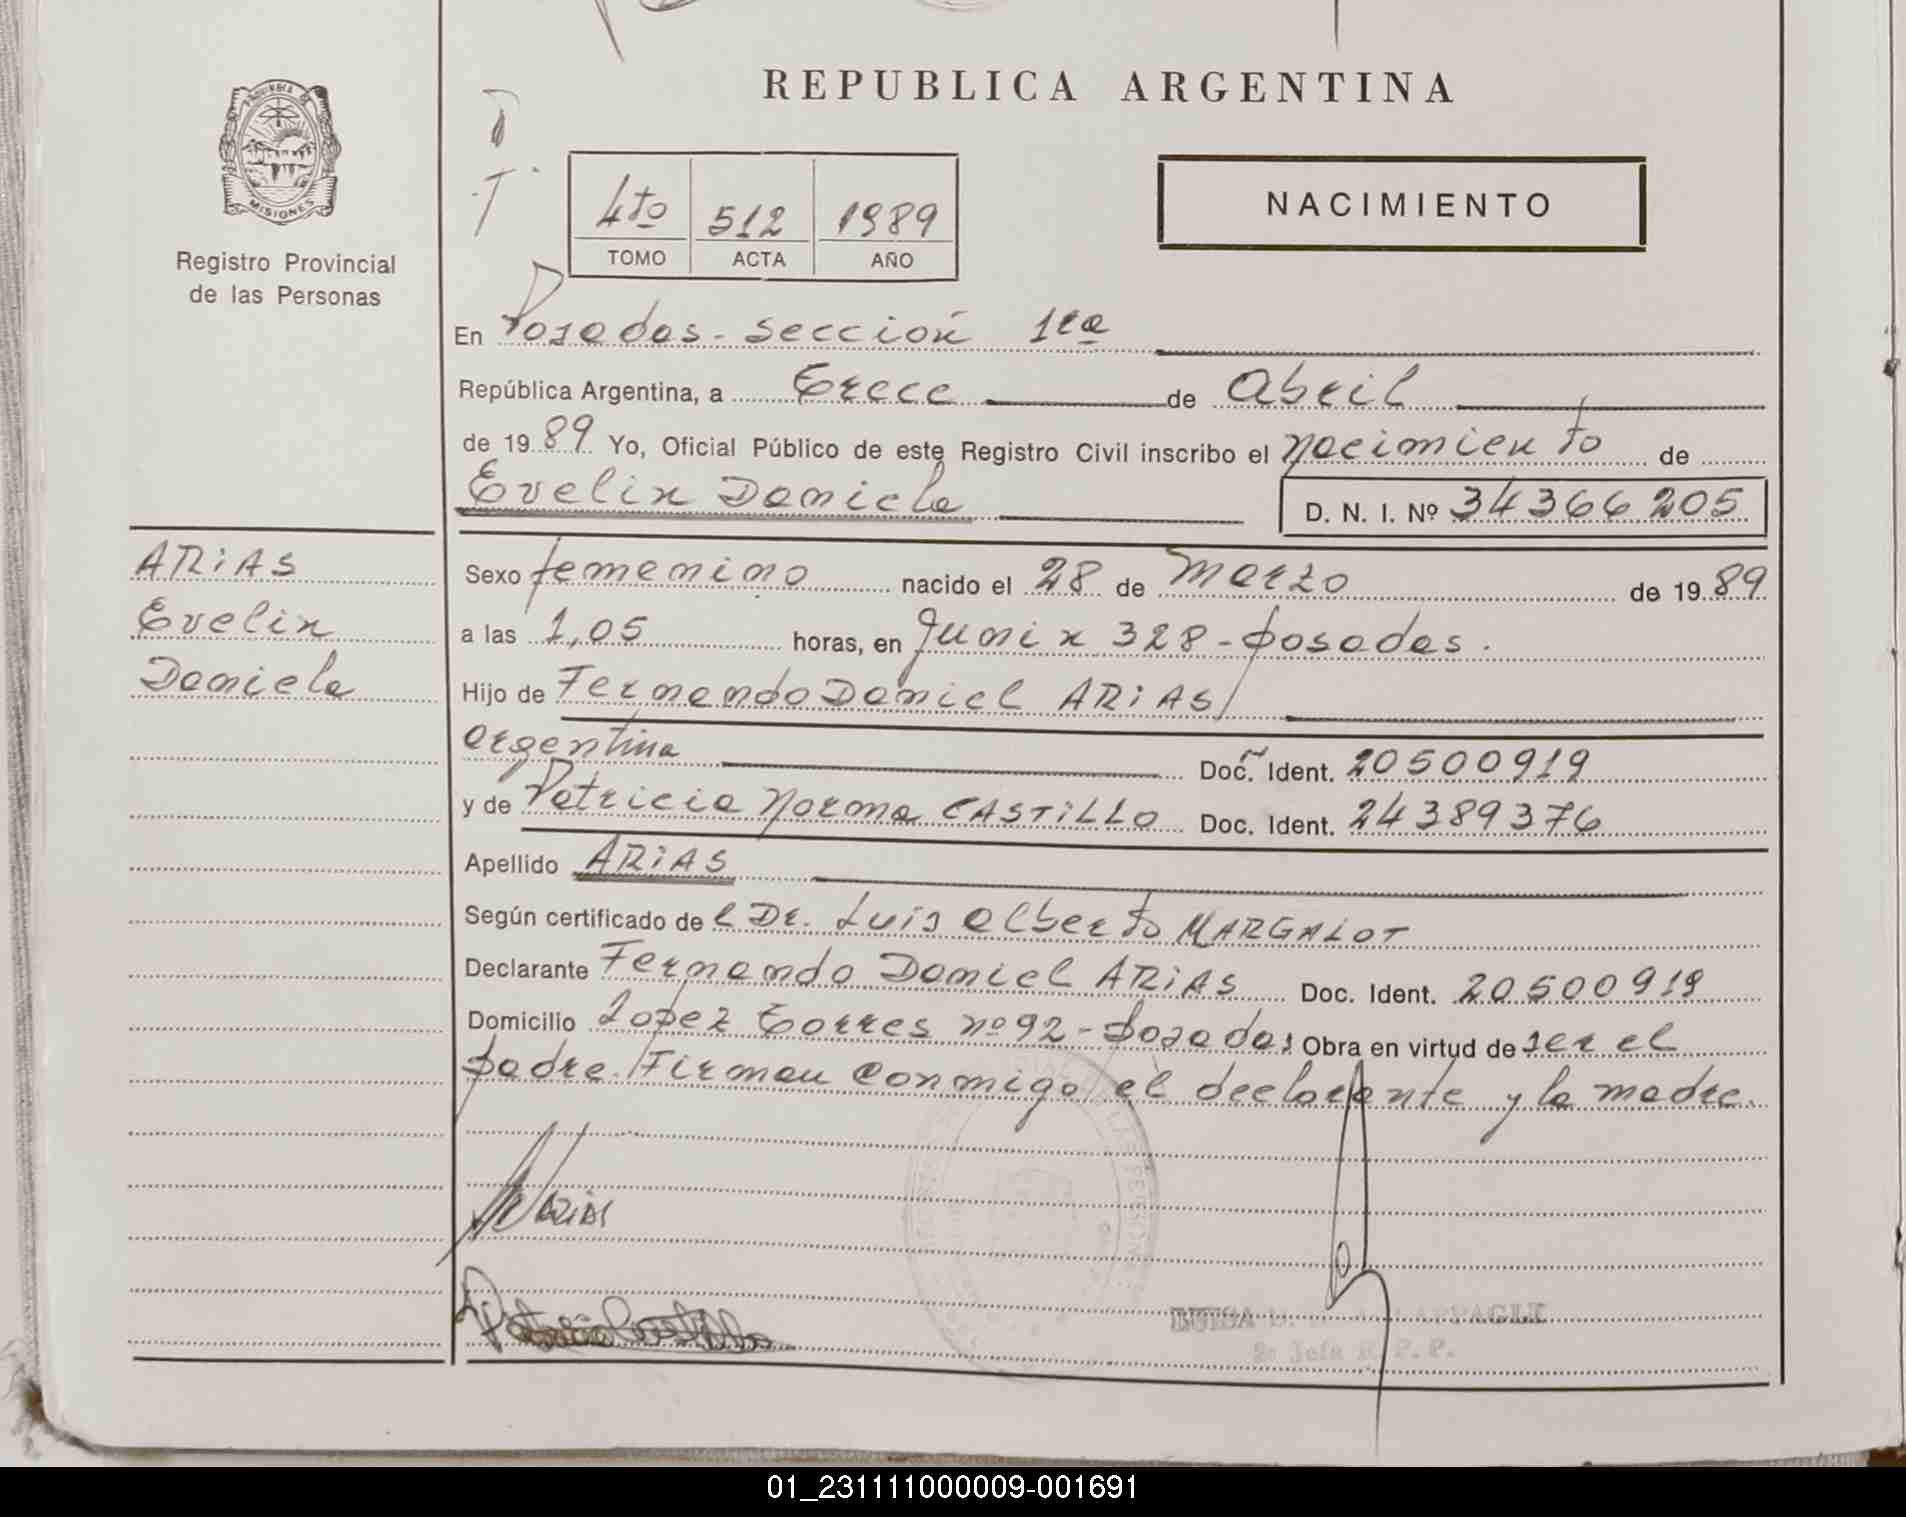 REPUBLICA ARGENTINA
PROVINCIA DE
MISIONES
Registro Provincial
de las Personas
4to 512 1989
TOMO ACTA AÑO
NACIMIENTO
En Posadas - sección 1ra
República Argentina, a trece de abril
de 1989 Yo, Oficial Público de este Registro Civil inscribo el nacimiento de
Evelin Daniela
D. N. I. Nº 34366205
ARIAS
Evelin
Daniela
Sexo femenino nacido el 28 de marzo de 1989
a las 1,05 horas, en Junin 328 - Posadas.
Hijo de Fernando Daniel ARIAS
argentina Doc. Ident. 20500919
y de Patricia Norma CASTILLO Doc. Ident. 24389376
Apellido ARIAS
Según certificado del Dr. Luis Alberto MARGALOT
Declarante Fernando Daniel ARIAS Doc. Ident. 20500919
Domicilio Lopez Torres nº 92 - Posadas Obra en virtud de ser el
padre. Firman conmigo el declarante y la madre.
ARIAS
Patricia Castillo
LUISA
2º Jefa R. P. P.
01_231111000009-001691